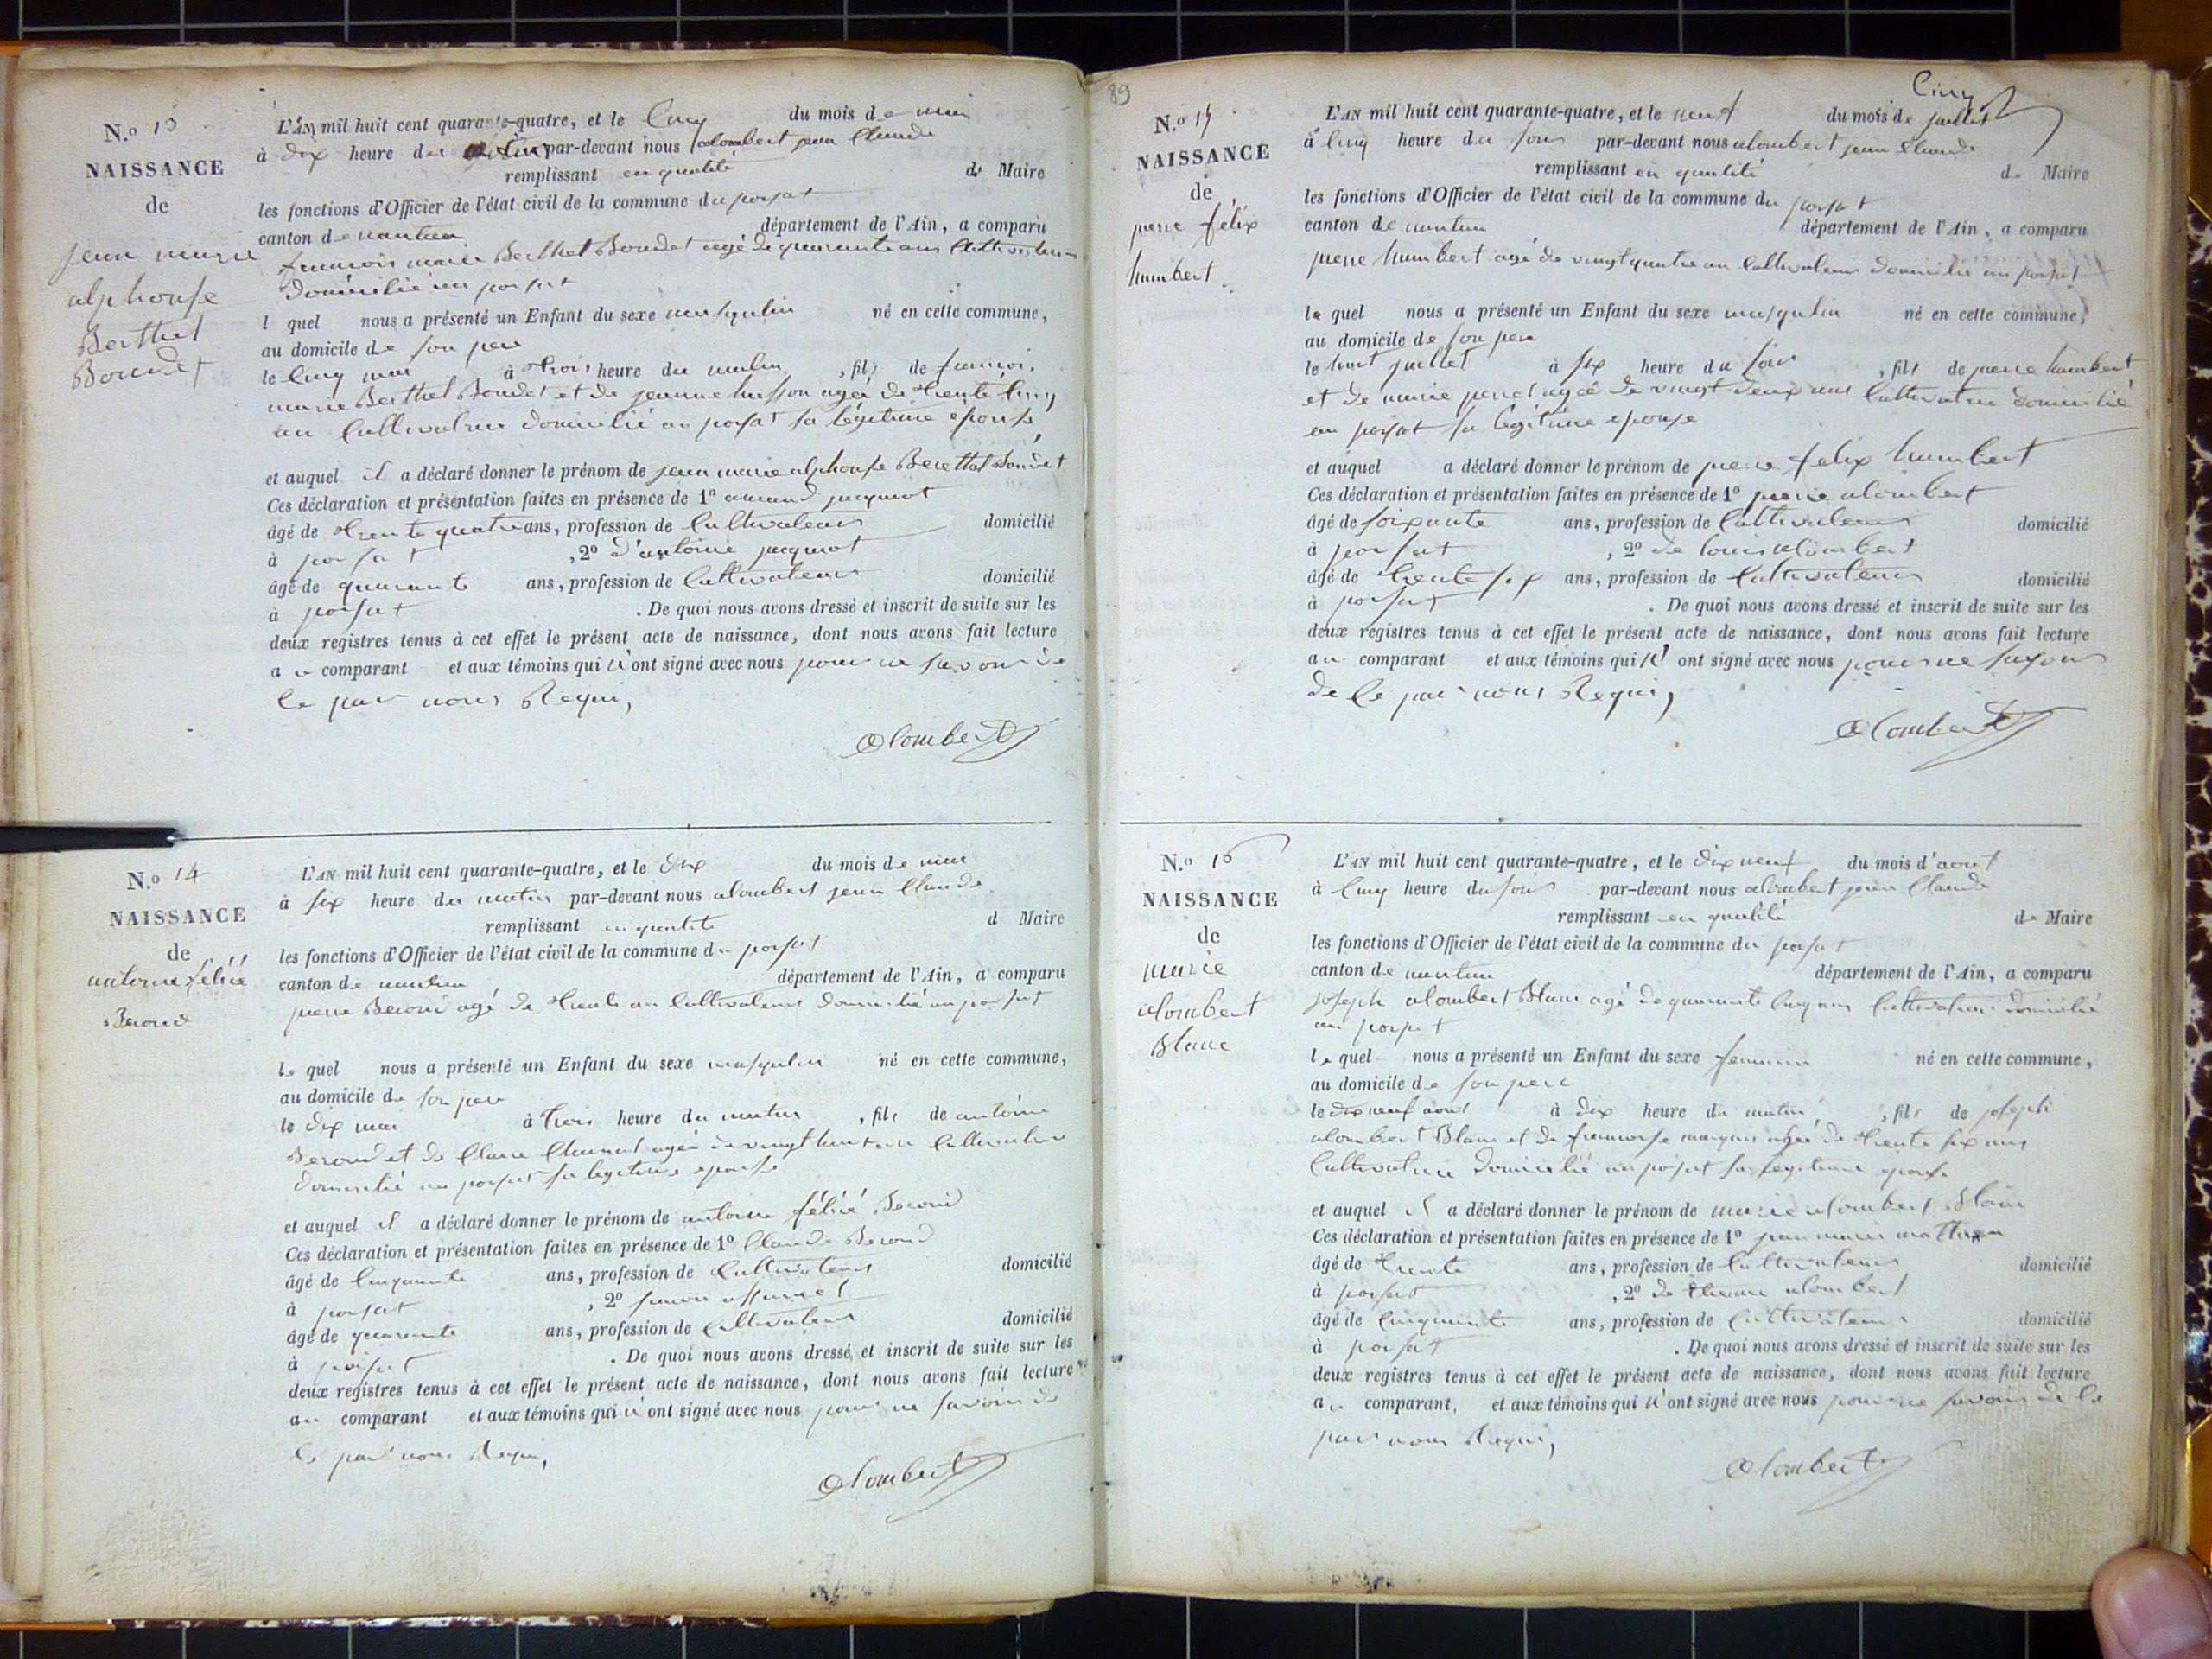 N.o 13
NAISSANCE
de
jean marie
alphonse
Berthet
Boudet
L'AN mil huit cent quarante-quatre, et le Cinq du mois de mai
à dix heure du par-devant nous alombert jean Claude
remplissant en qualité de Maire
les fonctions d'Officier de l'état civil de la commune du porsat
canton de nantua département de l'Ain, a comparu
françois marie Berthet Boudet agé de quarante ans Cultivateur
domicilié au porsat
l quel nous a présenté un Enfant du sexe masqulin né en cette commune,
au domicile de son pere
le Cinq mai à trois heure du matin, fils de françois
marie Berthet Boudet et de jeanne husson agée de trente Cinq
an Cultivatrice domicilié au porsat sa légitime epouse
et auquel il a déclaré donner le prénom de jean marie alphonse Berethet Boudet
Ces déclaration et présentation faites en présence de 1o amand jacquiot
âgé de trente quatre ans, profession de Cultivateur domicilié
à porsat, 2o d'antoine jacquiot
âgé de quarante ans, profession de Cultivateur domicilié
à porsat. De quoi nous avons dressé et inscrit de suite sur les
deux registres tenus à cet effet le présent acte de naissance, dont nous avons fait lecture
au comparant et aux témoins qui n'ont signé avec nous pour ne savoir de
Ce par nous Requi,
alombert
N.o 14
NAISSANCE
de
antoine félicé
Beroud
L'AN mil huit cent quarante-quatre, et le dix du mois de mai
à six heure du matin par-devant nous alombert jean Claude
remplissant en qualité d Maire
les fonctions d'Officier de l'état civil de la commune du porsat
canton de nantua département de l'Ain, a comparu
pierre Beroud agé de trente an Cultivateur domicilié au porsat
le quel nous a présenté un Enfant du sexe masqulin né en cette commune,
au domicile de son pere
le dix mai à trois heure du matin, fils de antoine
Beroud et de Claire agée de vingt huit an Cultivatrice
domicilié au porsat sa légitime epouse
et auquel il a déclaré donner le prénom de antoine félicé Beroud
Ces déclaration et présentation faites en présence de 1o Claude Beroud
âgé de Cinquante ans, profession de Cultivateur domicilié
à porsat, 2o
âgé de quarante ans, profession de Cultivateur domicilié
à porsat. De quoi nous avons dressé et inscrit de suite sur les
deux registres tenus à cet effet le présent acte de naissance, dont nous avons fait lecture
au comparant et aux témoins qui n'ont signé avec nous pour ne savoir de
Ce par nous Requi,
alombert
89
Cinq
N.o 15
NAISSANCE
de
pierre félix
humbert
L'AN mil huit cent quarante-quatre, et le neuf du mois de juillet
à Cinq heure du soir par-devant nous alombert jean Claude
remplissant en qualité de Maire
les fonctions d'Officier de l'état civil de la commune du porsat
canton de nantua département de l'Ain, a comparu
pierre humbert agé de vingt quatre an Cultivateur domicilié au porsat
le quel nous a présenté un Enfant du sexe masqulin né en cette commune,
au domicile de son pere
le huit juillet à six heure du soir, fils de pierre humbert
et de marie agée de vingt deux ans Cultivatrice domicilié
au porsat sa légitime epouse
et auquel a déclaré donner le prénom de pierre felix humbert
Ces déclaration et présentation faites en présence de 1o pierre alombert
âgé de soixante ans, profession de Cultivateur domicilié
à porsat, 2o de louis alombert
âgé de trente six ans, profession de Cultivateur domicilié
à porsat. De quoi nous avons dressé et inscrit de suite sur les
deux registres tenus à cet effet le présent acte de naissance, dont nous avons fait lecture
au comparant et aux témoins qui n'ont signé avec nous pour ne savoir
de Ce par nous Requi,
alombert
N.o 16
NAISSANCE
de
marie
alombert
Blanc
L'AN mil huit cent quarante-quatre, et le dix neuf du mois d'aout
à Cinq heure du soir par-devant nous alombert jean Claude
remplissant en qualité de Maire
les fonctions d'Officier de l'état civil de la commune du porsat
canton de nantua département de l'Ain, a comparu
joseph alombert Blanc agé de quarante Cinq ans Cultivateur domicilié
au porsat
le quel nous a présenté un Enfant du sexe feminin né en cette commune,
au domicile de son pere
le dix neuf aout à dix heure du matin, fils de joseph
alombert Blanc et de francoise agée de trente six ans
Cultivatrice domicilié au porsat sa légitime epouse
et auquel il a déclaré donner le prénom de marie alombert Blanc
Ces déclaration et présentation faites en présence de 1o jean marie
âgé de trente ans, profession de Cultivateur domicilié
à porsat, 2o de alombert
âgé de Cinquante ans, profession de Cultivateur domicilié
à porsat. De quoi nous avons dressé et inscrit de suite sur les
deux registres tenus à cet effet le présent acte de naissance, dont nous avons fait lecture
au comparant, et aux témoins qui n'ont signé avec nous pour ne savoir de Ce
par nous Requi,
alombert